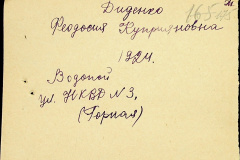 Диденко
Феодосия Куприяновна
1924.
Водопой
ул. НКВД №3,
(Горная)